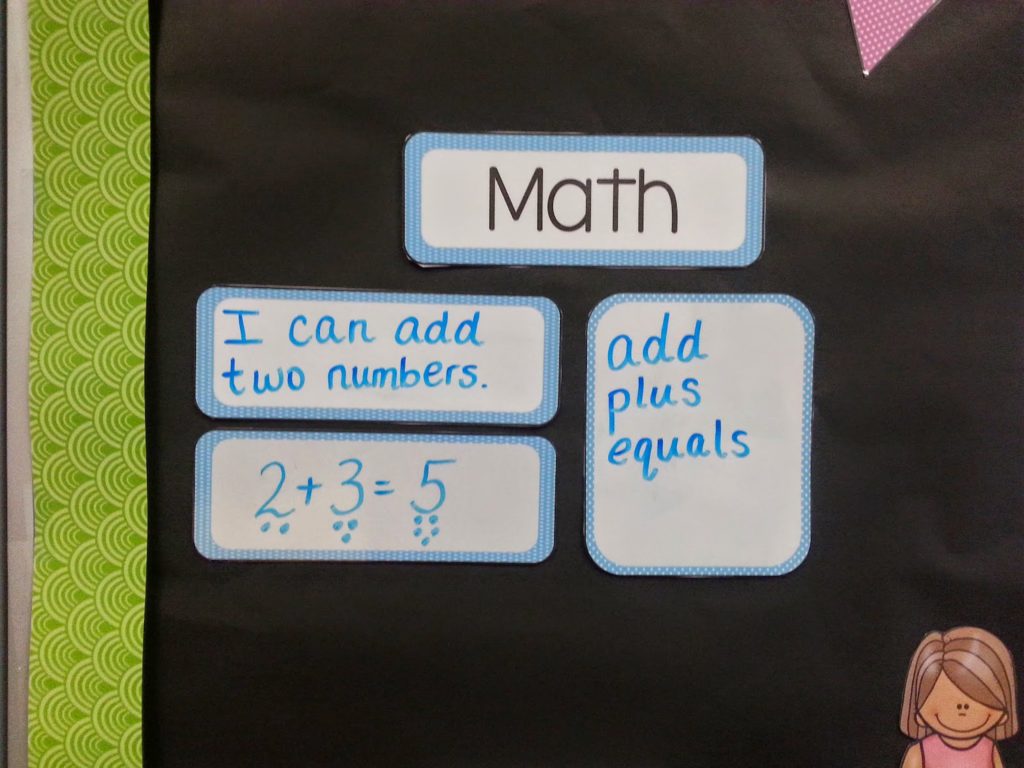 Math
I can add
two numbers.
2 + 3 = 5
add
plus
equals